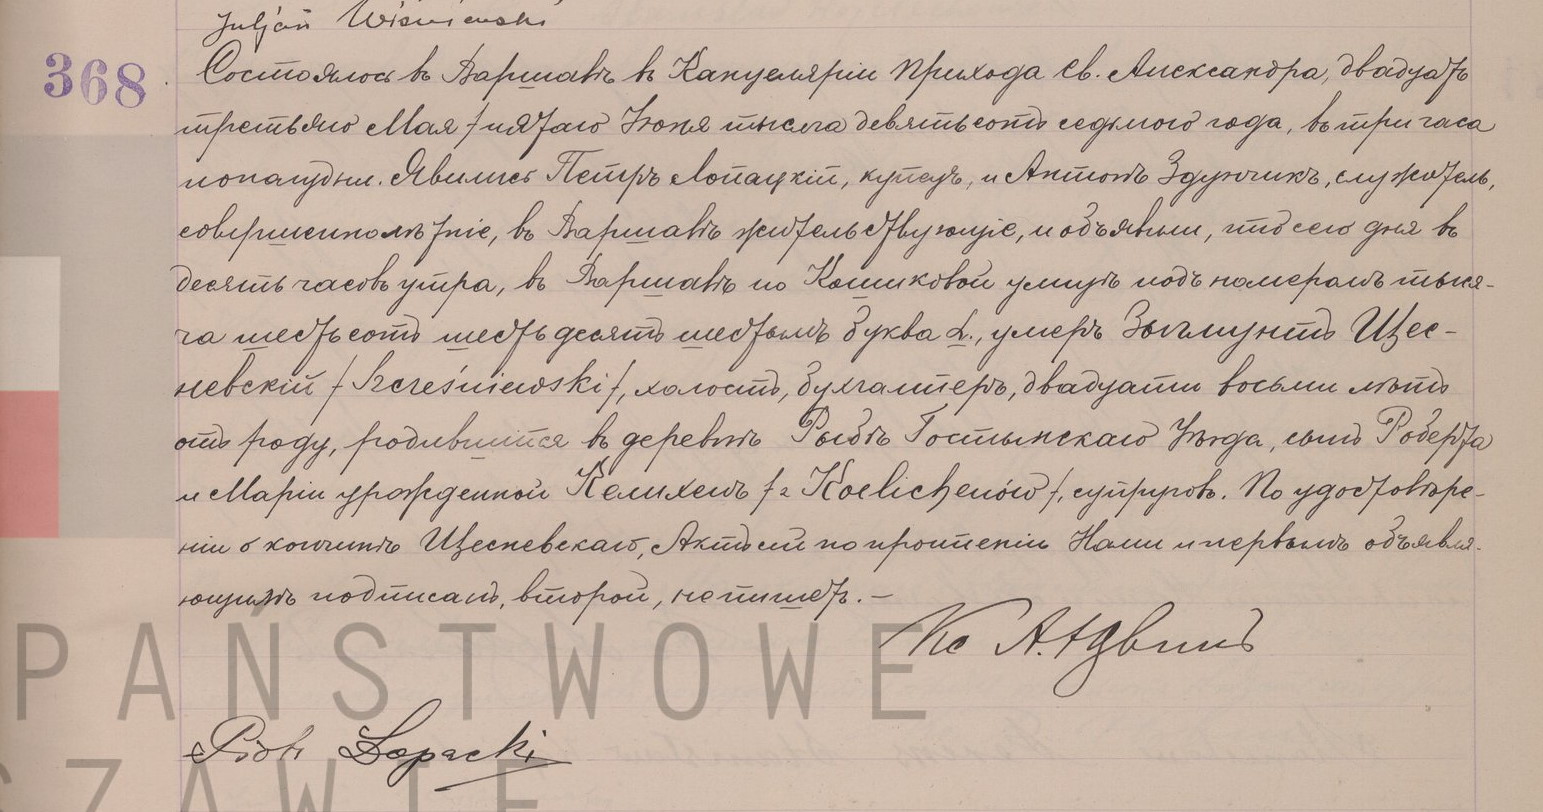 Juljan Wiśniewski
368.
Состоялось въ Варшавѣ въ Канцеляріи Прихода Св. Александра, двадцать
третьяго Мая / пятаго Іюня тысяча девятьсотъ седьмого года, въ три часа
пополудни. Явились Петръ Лопацкій, купецъ, и Антонъ Здунчикъ, служитель,
совершеннолѣтніе, въ Варшавѣ жительствующіе, и объявили, что сего дня въ
десять часовъ утра, въ Варшавѣ по Кошиковой улицѣ подъ номеромъ тыся-
ча шестьсотъ шестьдесятъ шестымъ буква L., умеръ Зыгмунтъ Щес-
невскій / Szcześniewski /, холостъ, бухгалтеръ, двадцати восьми лѣтъ
отъ роду, родившійся въ деревнѣ Рыбѣ Гостынскаго Уѣзда, сынъ Роберта
и Маріи урожденной Келихенъ / z Koelichenów /, супруговъ. По удостовѣре-
ніи о кончинѣ Щесневскаго, Актъ сей по прочтеніи Нами и первымъ объявля-
ющимъ подписанъ, второй, не пишетъ. –
Кс А.
Piotr Łopacki
PAŃSTWOWE
SZAWIE